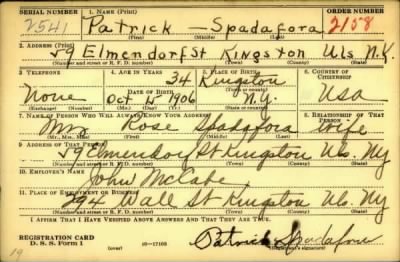 SERIAL NUMBER 1. NAME (Print) ORDER NUMBER
2541 Patrick Spadafora 2158
2. ADDRESS (Print)
59 Elmendorf St Kingston Uls N.Y.
(Number and street or R. F. D. number) (Town) (County) (State)
3. TELEPHONE 4. AGE IN YEARS 5. PLACE OF BIRTH 6. COUNTRY OF CITIZENSHIP
34 Kingston
None DATE OF BIRTH (Town or county)
Oct 4 1906 N.y. USA
(Exchange) (Number) (Mo.) (Day) (Yr.) (State or country)
7. NAME OF PERSON WHO WILL ALWAYS KNOW YOUR ADDRESS 8. RELATIONSHIP OF THAT PERSON
Mrs Rose Spadafora Wife
(Mr., Mrs., Miss) (First) (Middle) (Last)
9. ADDRESS OF THAT PERSON
59 Elmendorf St Kingston Uls. Ny
(Number and street or R. F. D. number) (Town) (County) (State)
10. EMPLOYER'S NAME
John McCabe
11. PLACE OF EMPLOYMENT OR BUSINESS
294 Wall St Kingston Uls. Ny
(Number and street or R. F. D. number) (Town) (County) (State)
I AFFIRM THAT I HAVE VERIFIED ABOVE ANSWERS AND THAT THEY ARE TRUE.
REGISTRATION CARD
D. S. S. Form 1 (over) 16—17105 Patrick Spadafora
(Registrant's signature)
19